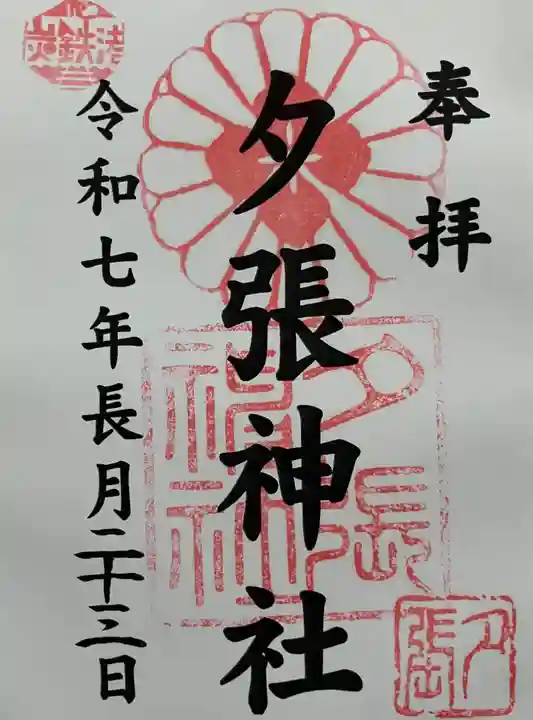 奉拝
夕張神社
令和七年長月二十三日
夕張神社
夕張
炭鉄港